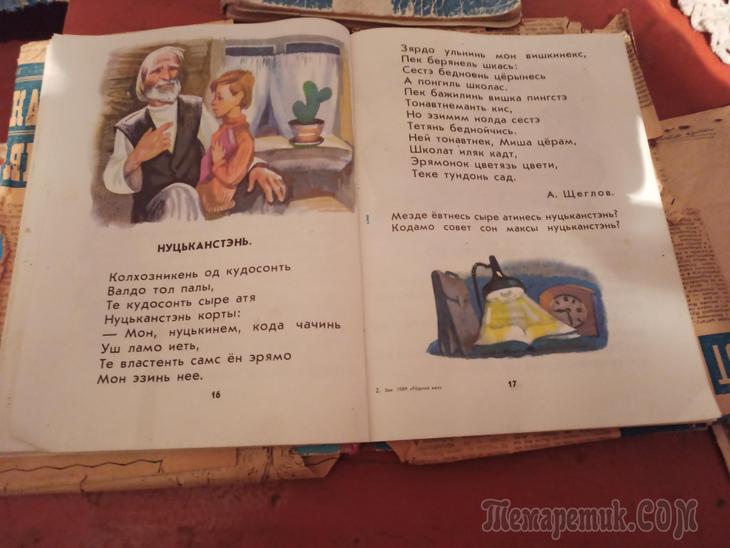 НУЦЬКАНСТЭНЬ.
Колхозникень од кудосонть
Валдо тол палы,
Те кудосонть сыре атя
Нуцьканстэнь корты:
— Мон, нуцькинем, кода чачинь
Уш ламо иеть,
Те властенть самс ён эрямо
Мон эзинь нее.
16
Зярдо ульнинь мон вишкинекс,
Пек берянель шкась:
Сестэ бедноень цёрынесь
А понгиль школас.
Пек бажилинь вишка пингстэ
Тонавтнемантъ кис,
Но эзимим нолда сестэ
Тетянь беднойчись.
Ней тонавтнек, Миша цёрам,
Школат иляк кадт,
Эрямонок цветязь цвети,
Теке тундонь сад.
А. Щеглов.
Мезде ёвтнесь сыре атинесь нуцьканстэнь?
Кодамо совет сон максы нуцьканстэнь?
2. Зак. 1089 «Родной
17
Темаретик.COM